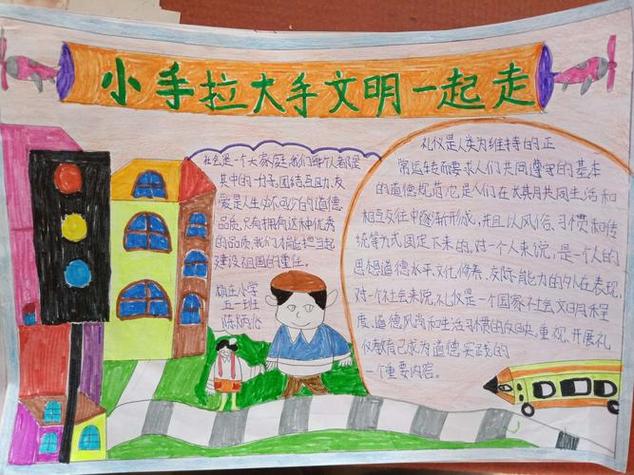 小手拉大手文明一起走
社会是一个大家庭,我们每个人都是
其中的一份子,团结互助、友
爱是人生必不可少的道德
品质,只有拥有这种优秀
的品质,我们才能担当起
建设祖国的重任。
小学
五一班
陈炳
礼仪是人类为维持的正
常运转而要求人们共同遵守的基本
的道德规范,它是人们在长其月共同生活和
相互交往中逐渐形成,并且以风俗、习惯和传
统等方式固定下来的,对一个人来说,是一个人的
思想道德水平、文化修养、交际能力的外在表现,
对一个社会来说,礼仪是一个国家社会文明程
度、道德风尚和生活习惯的反映,重视、开展礼
仪教育已成为道德实践的
一个重要内容。